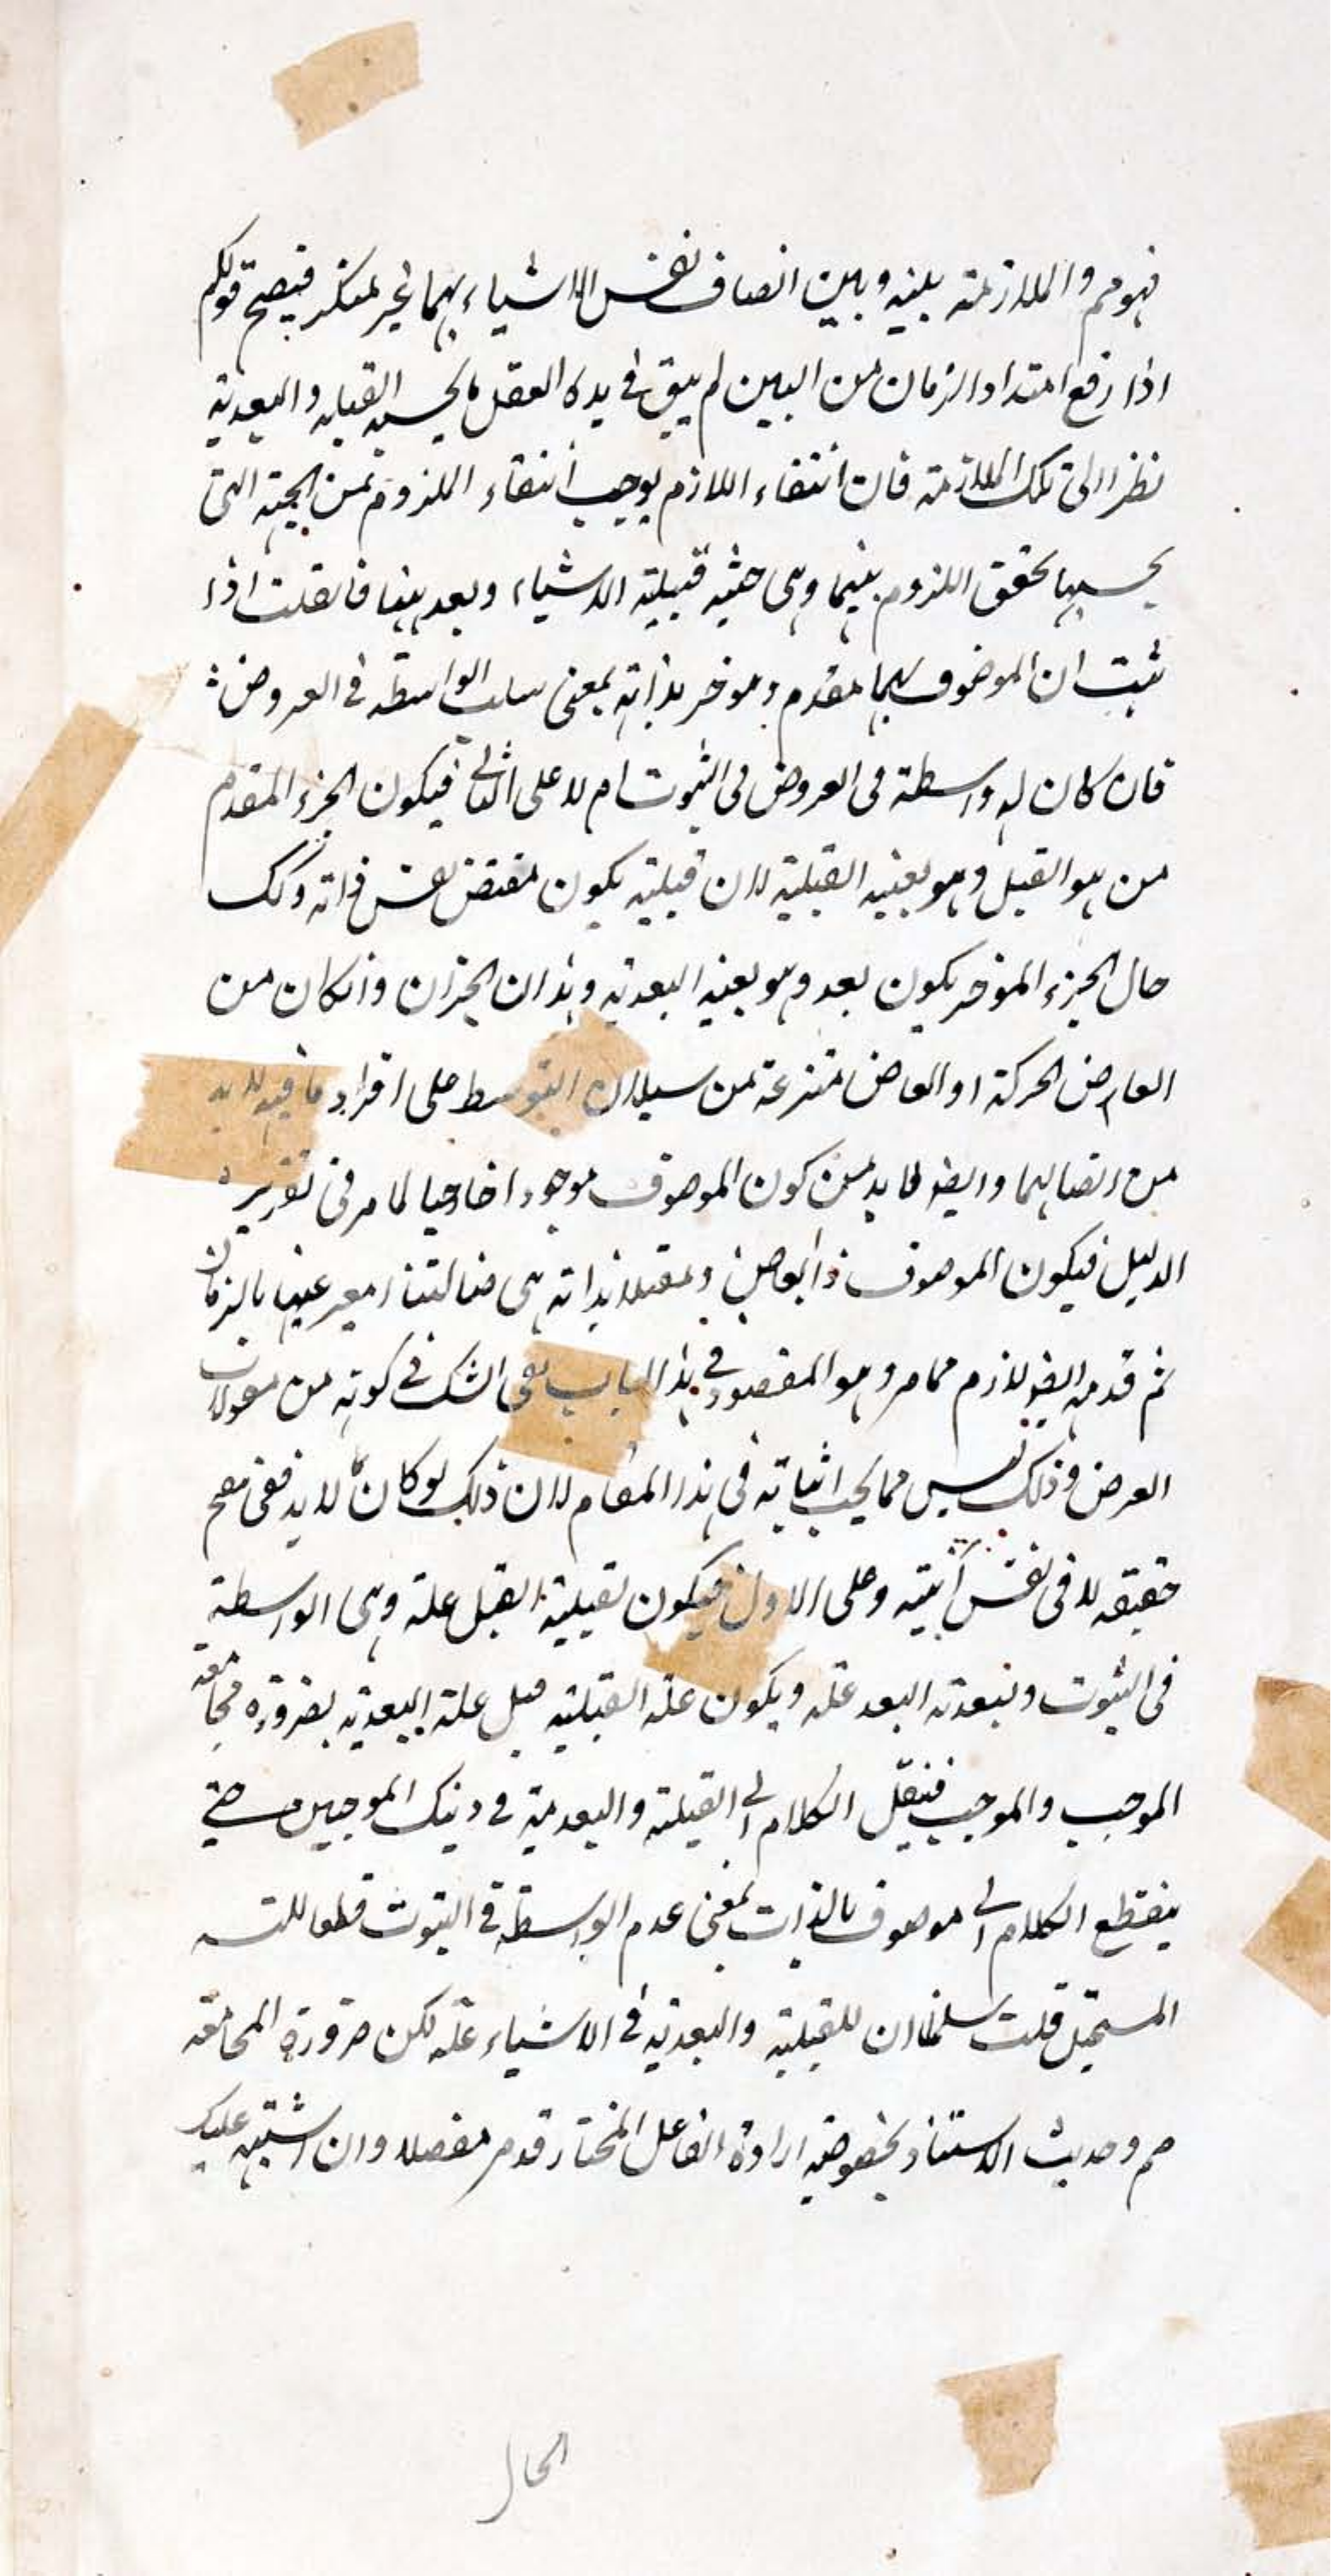 فهو مم والملازمة بينه وبين اتصاف نفس الاشياء بهما غير منكر فيصح قولكم
اذا رفع امتداد الزمان من البين لم يبق في يده العقل ما يحسبه القبلية والبعدية
نظرا الى تلك الملازمة فان انتفاء اللازم يوجب انتفاء الملزوم من الجهة التي
بحسبها تحقق اللزوم بينهما وهي حيثية قبلية الاشياء وبعديتها فان قلت اذا
ثبت ان الموصوف بهما مقدم وموخر بذاته بمعنى سلب الواسطة في العروض
فان كان له واسطة في العروض في الثبوت ام لا على الثاني فيكون الجزء المقدم
من هو القبل وهو بعينه القبلية لان قبلية يكون مقتضى نفس ذاته وكك
حال الجزء الموخر يكون بعد وهو بعينه البعدية وهذان الجزان وان كان من
العارض الحركة او العارض منتزعة من سيلان التوسط على افراد ما فيه لا بد
من اتصالهما وايضا لابد من كون الموصوف موجودا خارجيا لما مر في تقرير
الدليل فيكون الموصوف ذا بعاض ومقبلا بذاته هي ضالتنا المعبر عنها بالزمان
ثم قدمه ايضو لازم مما مر وهو المقصود في هذا الباب بقى الشك في كونه من مقولات
العرض وذلك ليس مما يجب اثباته في هذا المقام لان ذلك لو كان لا بد ففي مقح
حقيقته لا في نفس انيته وعلى الاول فيكون لقبلية القبل علة وهي الواسطة
في الثبوت ولبعدية البعد علة ويكون علة القبلية قبل علة البعدية بضرورة مجامعة
الموجب والموجب فننقل الكلام الى القبلية والبعدية في ذينك الموجبين حتى
ينقطع الكلام الى موصوف بالذات بمعنى عدم الواسطة في الثبوت قطعا للتسلسل
المستحيل قلت سلمنا ان للقبلية والبعدية في الاشياء علة لكن ضرورة المجامعة
مم وحديث الاستناد بخصوصية ارادة الفاعل المختار قد مر مفصلا وان اشتبه عليك
الحال